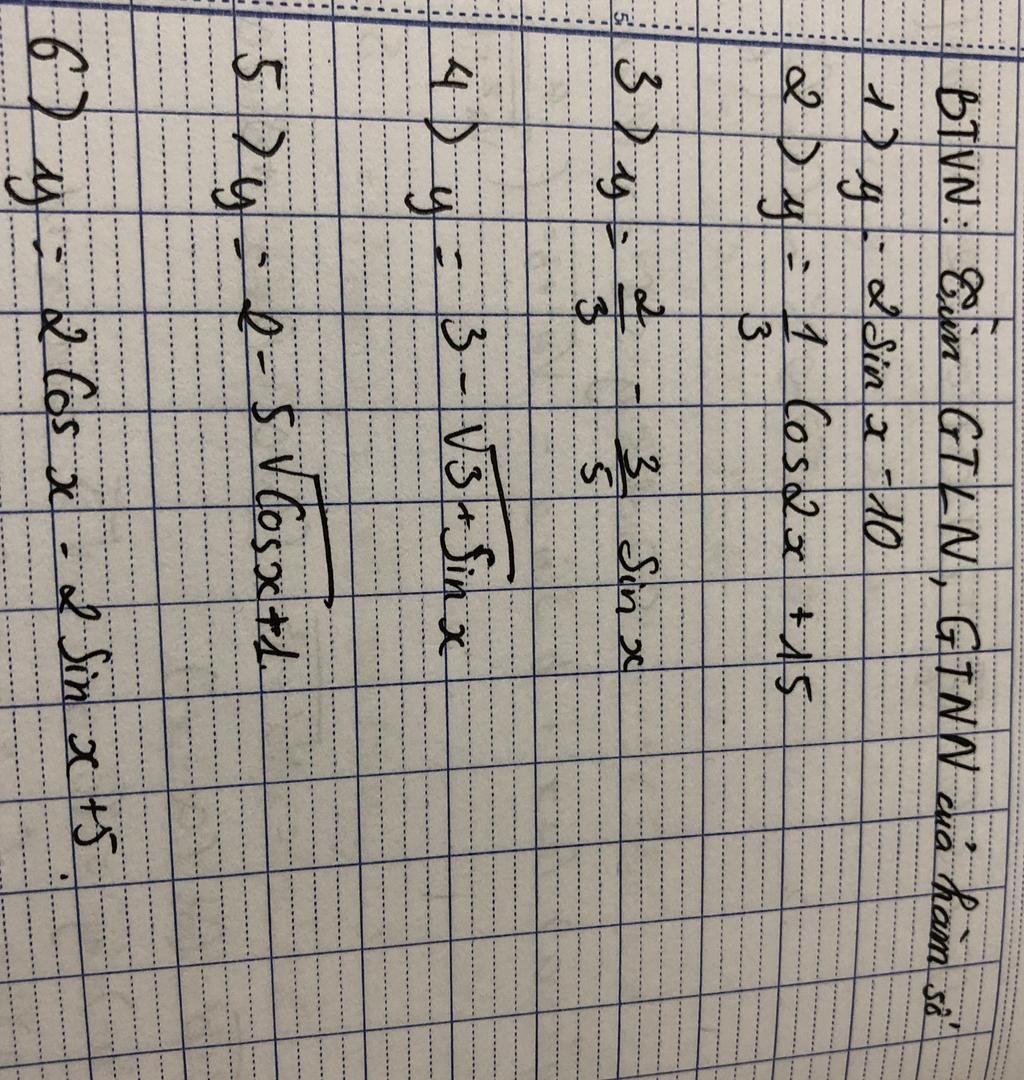 BTVN: Tìm GTLN, GTNN của hàm số
1) y = 2 sin x - 10
2) y = 1/3 cos 2x + 15
3) y = 2/3 - 3/5 sin x
4) y = 3 - √(3 + sin x)
5) y = 2 - 5√(cos x + 1)
6) y = 2 cos x - 2 sin x + 5.